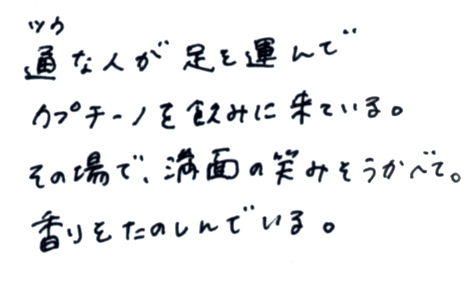 ツウ
通な人が足を運んで
カプチーノを飲みに来ている。
その場で、満面の笑みをうかべて。
香りをたのしんでいる。